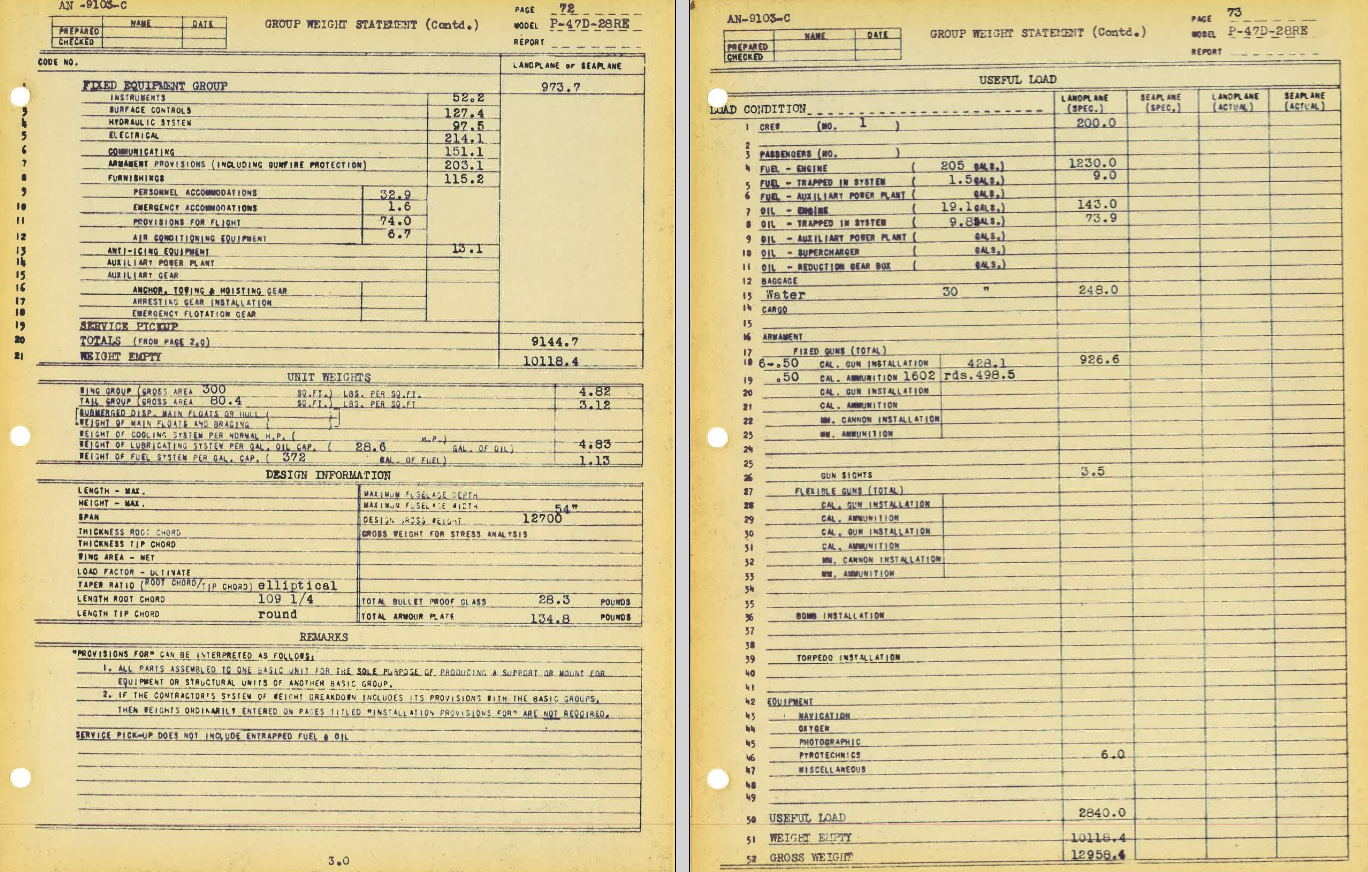 AN -9103-C
PAGE 72
NAME DATE
GROUP WEIGHT STATEMENT (Contd.)
MODEL P-47D-28RE
PREPARED
CHECKED
REPORT
CODE NO.
LANDPLANE or SEAPLANE
FIXED EQUIPMENT GROUP 973.7
INSTRUMENTS 52.2
3 SURFACE CONTROLS 127.4
4 HYDRAULIC SYSTEM 97.5
5 ELECTRICAL 214.1
6 COMMUNICATING 151.1
7 ARMAMENT PROVISIONS (INCLUDING GUNFIRE PROTECTION) 203.1
8 FURNISHINGS 115.2
9 PERSONNEL ACCOMMODATIONS 32.9
10 EMERGENCY ACCOMMODATIONS 1.6
11 PROVISIONS FOR FLIGHT 74.0
12 AIR CONDITIONING EQUIPMENT 6.7
13 ANTI-ICING EQUIPMENT 13.1
14 AUXILIARY POWER PLANT
15 AUXILIARY GEAR
16 ANCHOR, TOWING & HOISTING GEAR
17 ARRESTING GEAR INSTALLATION
18 EMERGENCY FLOTATION GEAR
19 SERVICE PICKUP
20 TOTALS (FROM PAGE 2.0) 9144.7
21 WEIGHT EMPTY 10118.4
UNIT WEIGHTS
WING GROUP (GROSS AREA 300 SQ.FT.) LBS. PER SQ.FT. 4.82
TAIL GROUP (GROSS AREA 80.4 SQ.FT.) LBS. PER SQ.FT 3.12
SUBMERGED DISP. MAIN FLOATS OR HULL (
WEIGHT OF MAIN FLOATS AND BRACING (
WEIGHT OF COOLING SYSTEM PER NORMAL H.P. ( H.P.)
WEIGHT OF LUBRICATING SYSTEM PER GAL. OIL CAP. ( 28.6 GAL. OF OIL) 4.83
WEIGHT OF FUEL SYSTEM PER GAL. CAP. ( 372 GAL. OF FUEL) 1.13
DESIGN INFORMATION
LENGTH - MAX. MAXIMUM FUSELAGE DEPTH
HEIGHT - MAX. MAXIMUM FUSELAGE WIDTH 54"
SPAN DESIGN GROSS WEIGHT 12700
THICKNESS ROOT CHORD GROSS WEIGHT FOR STRESS ANALYSIS
THICKNESS TIP CHORD
WING AREA - NET
LOAD FACTOR - ULTIMATE
TAPER RATIO (ROOT CHORD/TIP CHORD) elliptical
LENGTH ROOT CHORD 109 1/4 TOTAL BULLET PROOF GLASS 28.3 POUNDS
LENGTH TIP CHORD round TOTAL ARMOUR PLATE 134.8 POUNDS
REMARKS
"PROVISIONS FOR" CAN BE INTERPRETED AS FOLLOWS:
1. ALL PARTS ASSEMBLED TO ONE BASIC UNIT FOR THE SOLE PURPOSE OF PRODUCING A SUPPORT OR MOUNT FOR
EQUIPMENT OR STRUCTURAL UNITS OF ANOTHER BASIC GROUP.
2. IF THE CONTRACTOR'S SYSTEM OF WEIGHT BREAKDOWN INCLUDES ITS PROVISIONS WITH THE BASIC GROUPS,
THEN WEIGHTS ORDINARILY ENTERED ON PAGES TITLED "INSTALLATION PROVISIONS FOR" ARE NOT REQUIRED.
SERVICE PICK-UP DOES NOT INCLUDE ENTRAPPED FUEL & OIL
3.0
AN-9103-C
PAGE 73
NAME DATE
GROUP WEIGHT STATEMENT (Contd.)
MODEL P-47D-28RE
PREPARED
CHECKED
REPORT
USEFUL LOAD
LOAD CONDITION
LANDPLANE (SPEC.) SEAPLANE (SPEC.) LANDPLANE (ACTUAL) SEAPLANE (ACTUAL)
1 CREW (NO. 1 ) 200.0
2
3 PASSENGERS (NO. )
4 FUEL - ENGINE ( 205 GALS.) 1230.0
5 FUEL - TRAPPED IN SYSTEM ( 1.5GALS.) 9.0
6 FUEL - AUXILIARY POWER PLANT ( GALS.)
7 OIL - ENGINE ( 19.1GALS.) 143.0
8 OIL - TRAPPED IN SYSTEM ( 9.8GALS.) 73.9
9 OIL - AUXILIARY POWER PLANT ( GALS.)
10 OIL - SUPERCHARGER ( GALS.)
11 OIL - REDUCTION GEAR BOX ( GALS.)
12 BAGGAGE
13 Water 30 " 248.0
14 CARGO
15
16 ARMAMENT
17 FIXED GUNS (TOTAL)
18 6-.50 CAL. GUN INSTALLATION 428.1 926.6
19 .50 CAL. AMMUNITION 1602 rds.498.5
20 CAL. GUN INSTALLATION
21 CAL. AMMUNITION
22 MM. CANNON INSTALLATION
23 MM. AMMUNITION
24
25
26 GUN SIGHTS 3.5
27 FLEXIBLE GUNS (TOTAL)
28 CAL. GUN INSTALLATION
29 CAL. AMMUNITION
30 CAL. GUN INSTALLATION
31 CAL. AMMUNITION
32 MM. CANNON INSTALLATION
33 MM. AMMUNITION
34
35
36 BOMB INSTALLATION
37
38
39 TORPEDO INSTALLATION
40
41
42 EQUIPMENT
43 NAVIGATION
44 OXYGEN
45 PHOTOGRAPHIC
46 PYROTECHNICS 6.0
47 MISCELLANEOUS
48
49
50 USEFUL LOAD 2840.0
51 WEIGHT EMPTY 10118.4
52 GROSS WEIGHT 12958.4